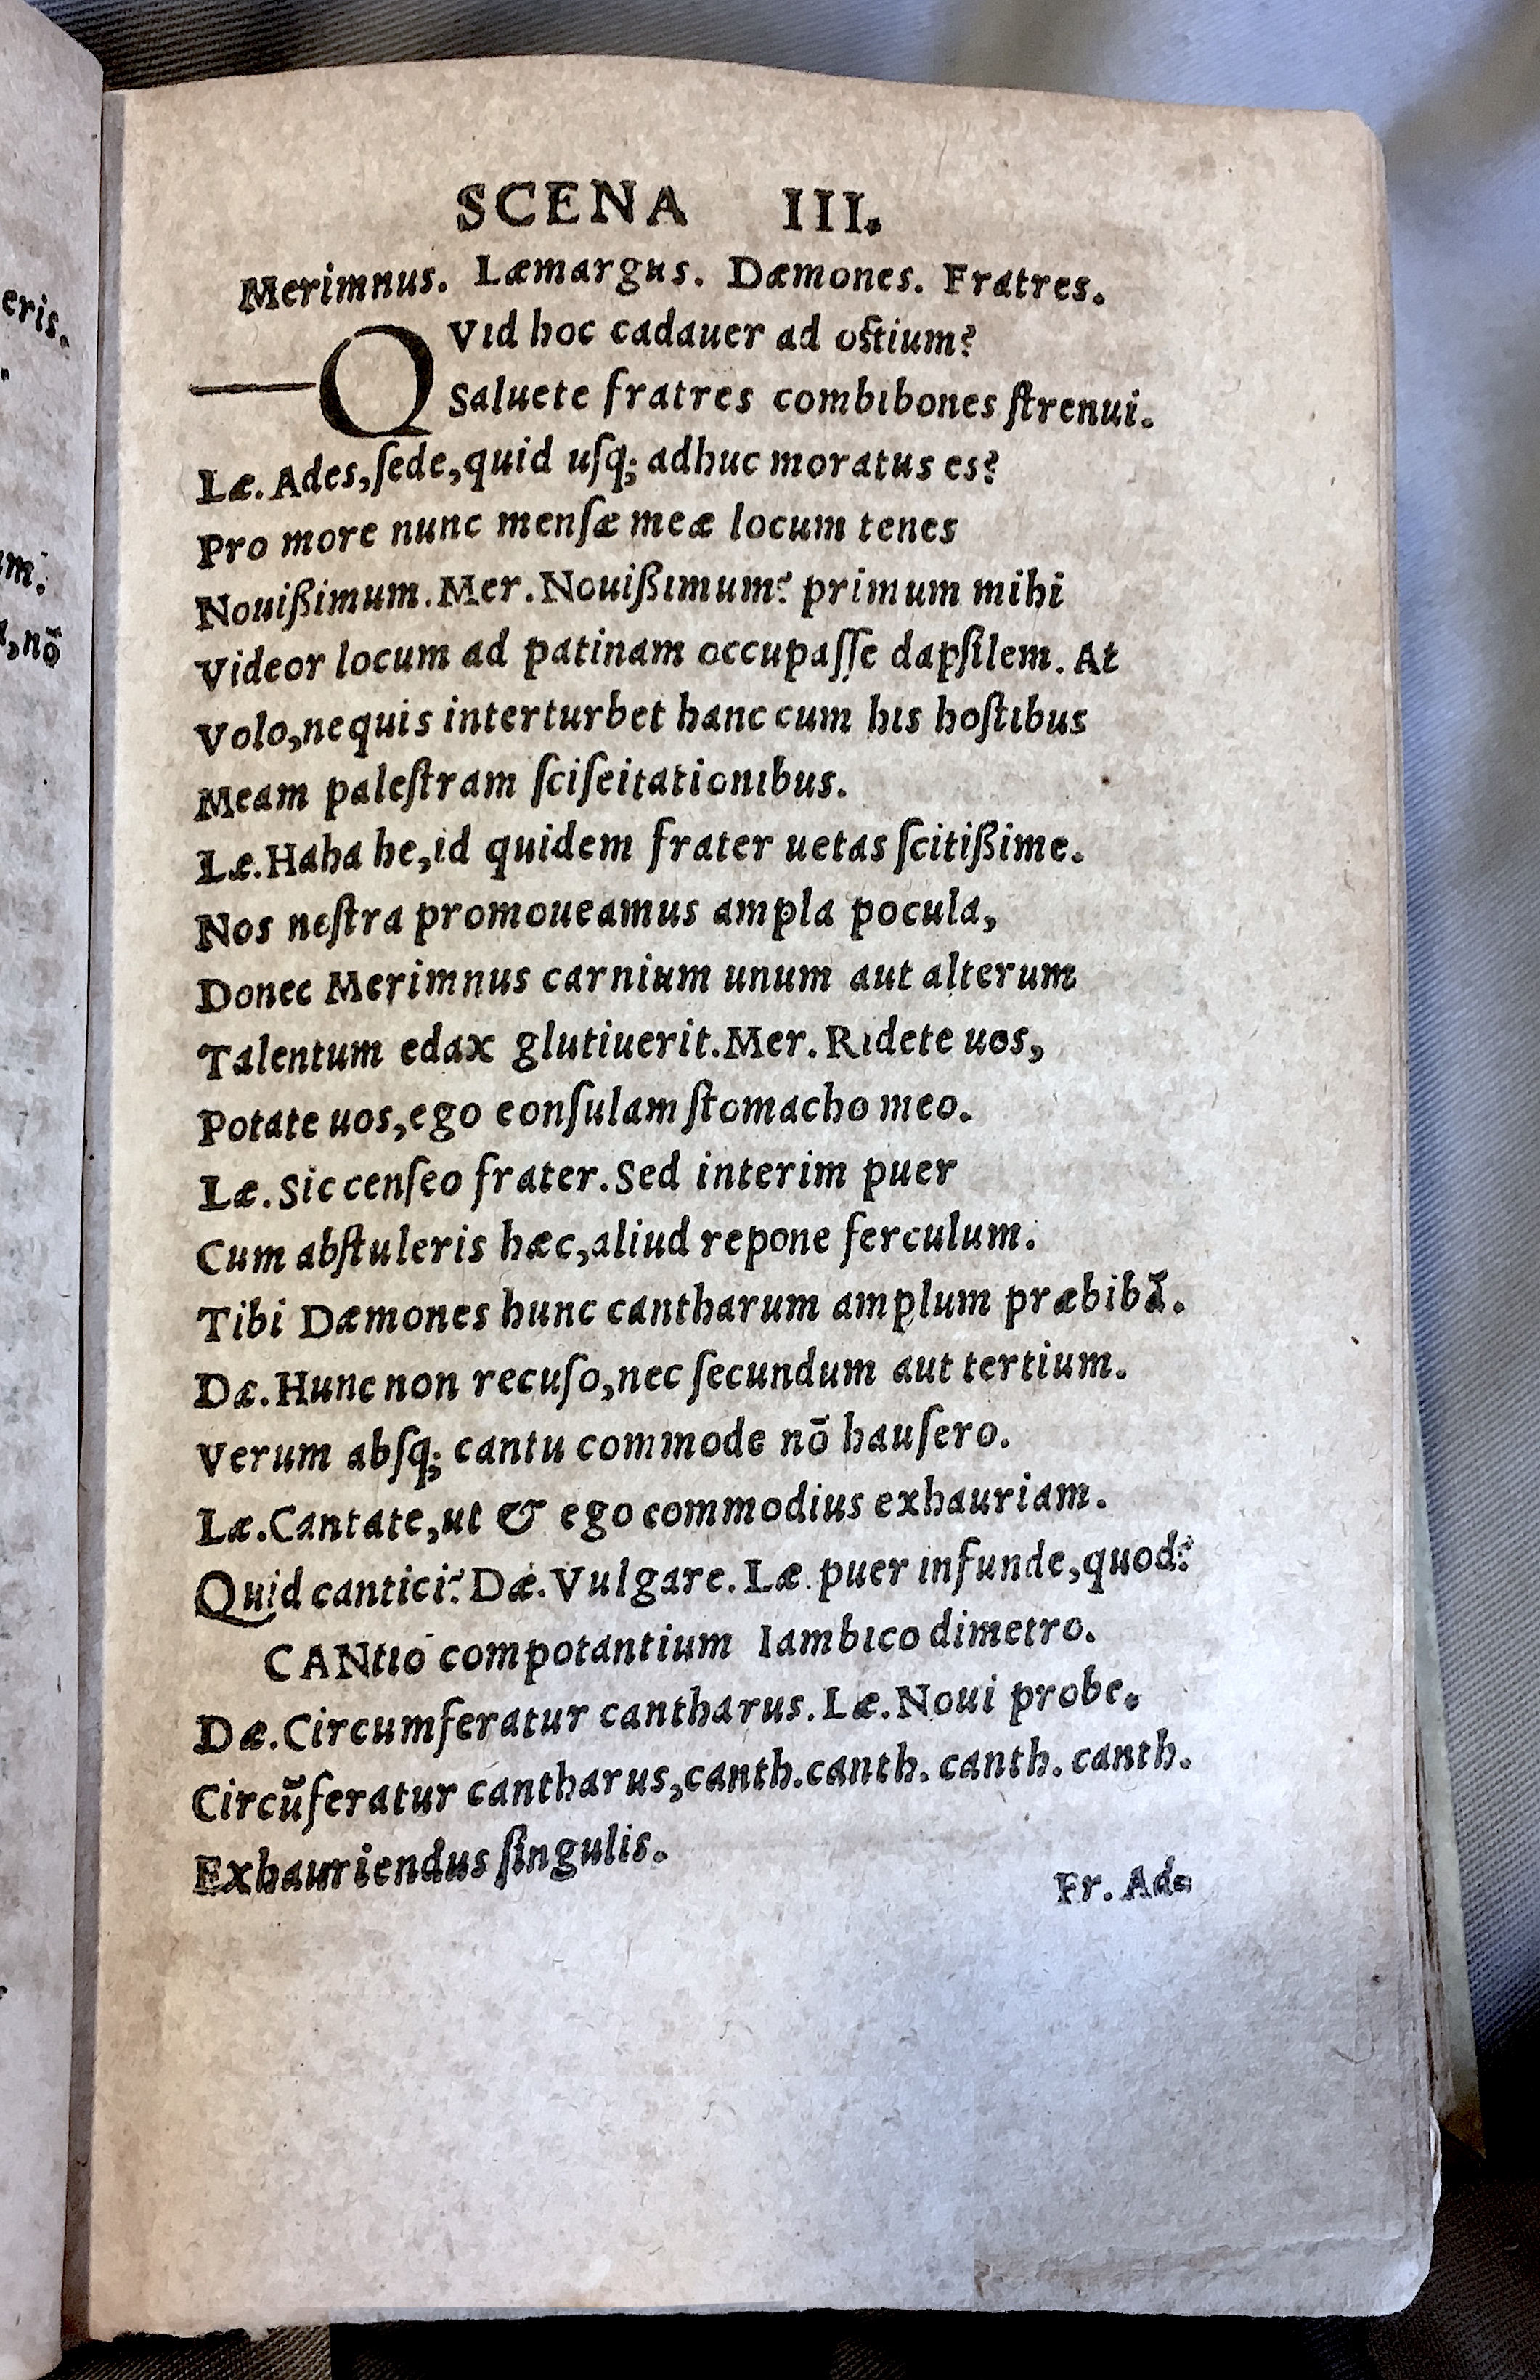 SCENA III.
Merimnus. Læmargus. Dæmones. Fratres.
QVid hoc cadauer ad ostium?
Saluete fratres combibones ſtrenui.
Læ. Ades, ſede, quid uſq; adhuc moratus es?
Pro more nunc menſæ meæ locum tenes
Nouißimum. Mer. Nouißimum? primum mihi
Videor locum ad patinam occupaſſe dapſilem. At
Volo, ne quis interturbet hanc cum his hoſtibus
Meam paleſtram ſciſcitationibus.
Læ. Haha he, id quidem frater uetas ſcitißime.
Nos noſtra promoueamus ampla pocula,
Donec Merimnus carnium unum aut alterum
Talentum edax glutiuerit. Mer. Ridete uos,
Potate uos, ego conſulam ſtomacho meo.
Læ. Sic cenſeo frater. Sed interim puer
Cum abſtuleris hæc, aliud repone ferculum.
Tibi Dæmones hunc cantharum amplum præbibā.
Dæ. Hunc non recuſo, nec ſecundum aut tertium.
Verum abſq; cantu commode nō hauſero.
Læ. Cantate, ut & ego commodius exhauriam.
Quid cantici? Dæ. Vulgare. Læ. puer infunde, quod?
CANtio compotantium Iambico dimetro.
Dæ. Circumferatur cantharus. Læ. Noui probe.
Circūferatur cantharus, canth. canth. canth. canth.
Exhauriendus ſingulis.
Fr. Ade
eris.
um:
nō